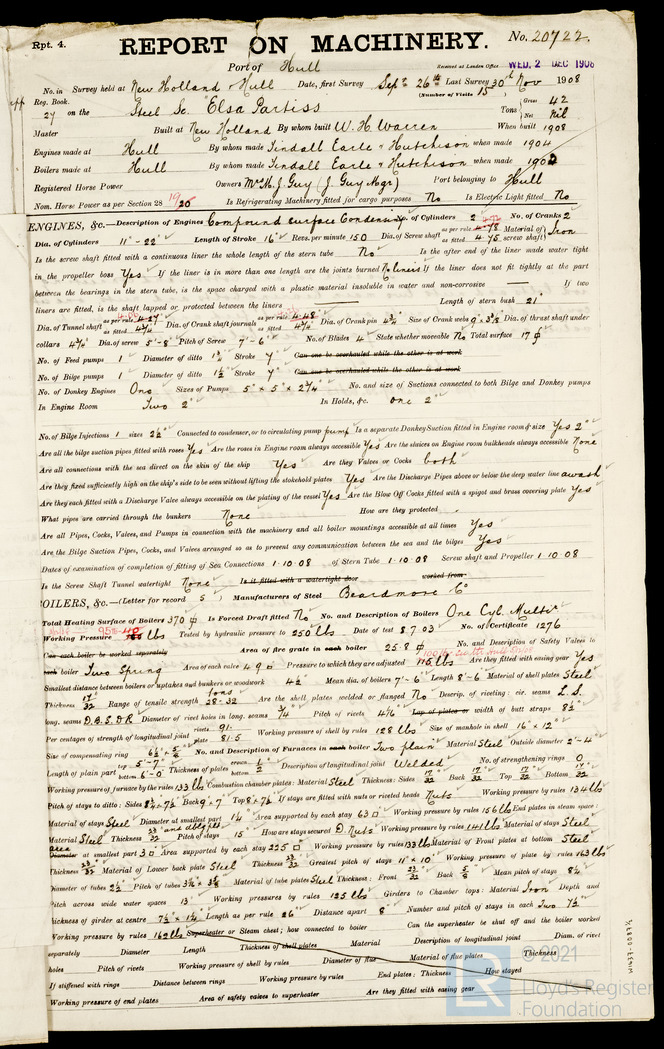 Rpt. 4.
REPORT ON MACHINERY. No. 20722.
Port of Hull
Received at London Office WED. 2 DEC 1908
No. in Survey held at New Holland & Hull Date, first Survey Sept 26th Last Survey 30th Nov 1908
Reg. Book. (Number of Visits 15)
27 on the Steel Sc. "Elsa Partiss" Tons { Gross 42 Net Nil
Master Built at New Holland By whom built W. H. Warren When built 1908
Engines made at Hull By whom made Tindall Earle & Hutchison when made 1904
Boilers made at Hull By whom made Tindall Earle & Hutchison when made
Registered Horse Power Owners J. Guy (J. Guy Mgr) Port belonging to Hull
Nom. Horse Power as per Section 28 20 Is Refrigerating Machinery fitted for cargo purposes No Is Electric Light fitted No
ENGINES, &c.—Description of Engines Compound surface Condensing No. of Cylinders 2 No. of Cranks 2
Dia. of Cylinders 11" - 22" Length of Stroke 16" Revs. per minute 150 Dia. of Screw shaft as per rule 4.78 as fitted 4.75 Material of screw shaft Iron
Is the screw shaft fitted with a continuous liner the whole length of the stern tube No Is the after end of the liner made water tight
in the propeller boss Yes If the liner is in more than one length are the joints burned No liners If the liner does not fit tightly at the part
between the bearings in the stern tube, is the space charged with a plastic material insoluble in water and non-corrosive — If two
liners are fitted, is the shaft lapped or protected between the liners — Length of stern bush 21"
Dia. of Tunnel shaft as per rule 4.27 as fitted 4¾ Dia. of Crank shaft journals as per rule 4.48 as fitted 4¾ Dia. of Crank pin 4¾ Size of Crank webs 9 x 3⅜ Dia. of thrust shaft under
collars 4¾ Dia. of screw 5'-8 Pitch of Screw 7'-6" No. of Blades 4 State whether moveable No Total surface 17
No. of Feed pumps 1 Diameter of ditto 1½ Stroke 7" Can one be overhauled while the other is at work
No. of Bilge pumps 1 Diameter of ditto 1½ Stroke 7" Can one be overhauled while the other is at work
No. of Donkey Engines One Sizes of Pumps 5" x 5" x 2¾" No. and size of Suctions connected to both Bilge and Donkey pumps
In Engine Room Two 2" In Holds, &c. one 2"
No. of Bilge Injections 1 sizes 2½ Connected to condenser, or to circulating pump pump Is a separate Donkey Suction fitted in Engine room & size Yes 2"
Are all the bilge suction pipes fitted with roses Yes Are the roses in Engine room always accessible Yes Are the sluices on Engine room bulkheads always accessible None
Are all connections with the sea direct on the skin of the ship Yes Are they Valves or Cocks both
Are they fixed sufficiently high on the ship's side to be seen without lifting the stokehold plates Yes Are the Discharge Pipes above or below the deep water line awash
Are they each fitted with a Discharge Valve always accessible on the plating of the vessel Yes Are the Blow Off Cocks fitted with a spigot and brass covering plate Yes
What pipes are carried through the bunkers None How are they protected
Are all Pipes, Cocks, Valves, and Pumps in connection with the machinery and all boiler mountings accessible at all times Yes
Are the Bilge Suction Pipes, Cocks, and Valves arranged so as to prevent any communication between the sea and the bilges Yes
Dates of examination of completion of fitting of Sea Connections 1-10-08 of Stern Tube 1-10-08 Screw shaft and Propeller 1-10-08
Is the Screw Shaft Tunnel watertight None Is it fitted with a watertight door worked from
BOILERS, &c.—(Letter for record S) Manufacturers of Steel Beardmore & Co
Total Heating Surface of Boilers 370 Is Forced Draft fitted No No. and Description of Boilers One Cyl. Multr
Working Pressure lbs Tested by hydraulic pressure to 250 lbs Date of test 8.7.03 No. of Certificate 1276
Can each boiler be worked separately Area of fire grate in each boiler 25.8 No. and Description of Safety Valves to
each boiler Two Spring Area of each valve 4.9 Pressure to which they are adjusted 115 lbs Are they fitted with easing gear Yes
Smallest distance between boilers or uptakes and bunkers or woodwork 4½" Mean dia. of boilers 7'-6" Length 8'-6" Material of shell plates Steel
Thickness 17/32 Range of tensile strength 28-32 tons Are the shell plates welded or flanged No Descrip. of riveting: cir. seams L.S.
long. seams D.B.S.D.R Diameter of rivet holes in long. seams ¾ Pitch of rivets 4⅞ Lap of plates or width of butt straps 8½
Per centages of strength of longitudinal joint rivets 91. plate 81.5 Working pressure of shell by rules 128 lbs Size of manhole in shell 16" x 12"
Size of compensating ring 6½ x ⅝ No. and Description of Furnaces in each boiler Two plain Material Steel Outside diameter 2'-4"
Length of plain part top 5'-7" bottom 6'-0" Thickness of plates crown bottom ½ Description of longitudinal joint Welded No. of strengthening rings 0
Working pressure of furnace by the rules 133 lbs Combustion chamber plates: Material Steel Thickness: Sides 17/32 Back 17/32 Top 17/32 Bottom
Pitch of stays to ditto: Sides 8¼ x 7½ Back 9 x 7 Top 8 x 7½ If stays are fitted with nuts or riveted heads Nuts Working pressure by rules 134 lbs
Material of stays Steel Diameter at smallest part 1¼ Area supported by each stay 63 Working pressure by rules 156 lbs End plates in steam space:
Material Steel Thickness 23/32 and doublg Pitch of stays 15" How are stays secured D. Nuts Working pressure by rules 141 lbs Material of stays Steel
area Diameter at smallest part 3 Area supported by each stay 225 Working pressure by rules 133 lbs Material of Front plates at bottom Steel
Thickness 23/32 Material of Lower back plate Steel Thickness 23/32 Greatest pitch of stays 11" x 10" Working pressure of plate by rules 163 lbs
Diameter of tubes 2½ Pitch of tubes 3¾ x 3⅝ Material of tube plates Steel Thickness: Front 23/32 Back ⅝ Mean pitch of stays 8¼
Pitch across wide water spaces 13" Working pressures by rules 125 lbs Girders to Chamber tops: Material Iron Depth and
thickness of girder at centre 7½ x 1¼ Length as per rule 26" Distance apart 8" Number and pitch of stays in each Two 7½
Working pressure by rules 162 lbs Superheater or Steam chest; how connected to boiler Can the superheater be shut off and the boiler worked
separately Diameter Length Thickness of shell plates Material Description of longitudinal joint Diam. of rivet
holes Pitch of rivets Working pressure of shell by rules Diameter of flue Material of flue plates Thickness
If stiffened with rings Distance between rings Working pressure by rules End plates: Thickness How stayed
Working pressure of end plates Area of safety valves to superheater Are they fitted with easing gear
© 2021
LR Lloyd's Register
Foundation